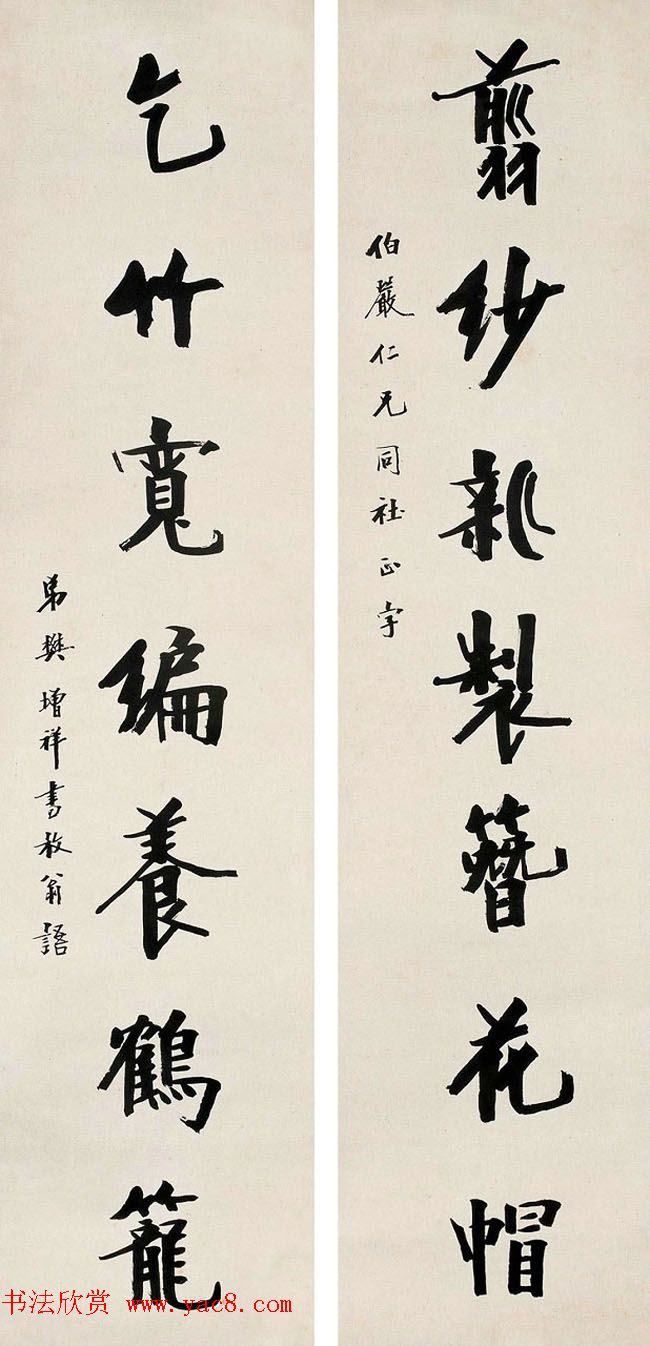 翦紗新製簪花帽
伯嚴仁兄同社正字
乞竹寬編養鶴籠
弟樊增祥書放翁語
书法欣赏 www.yac8.com